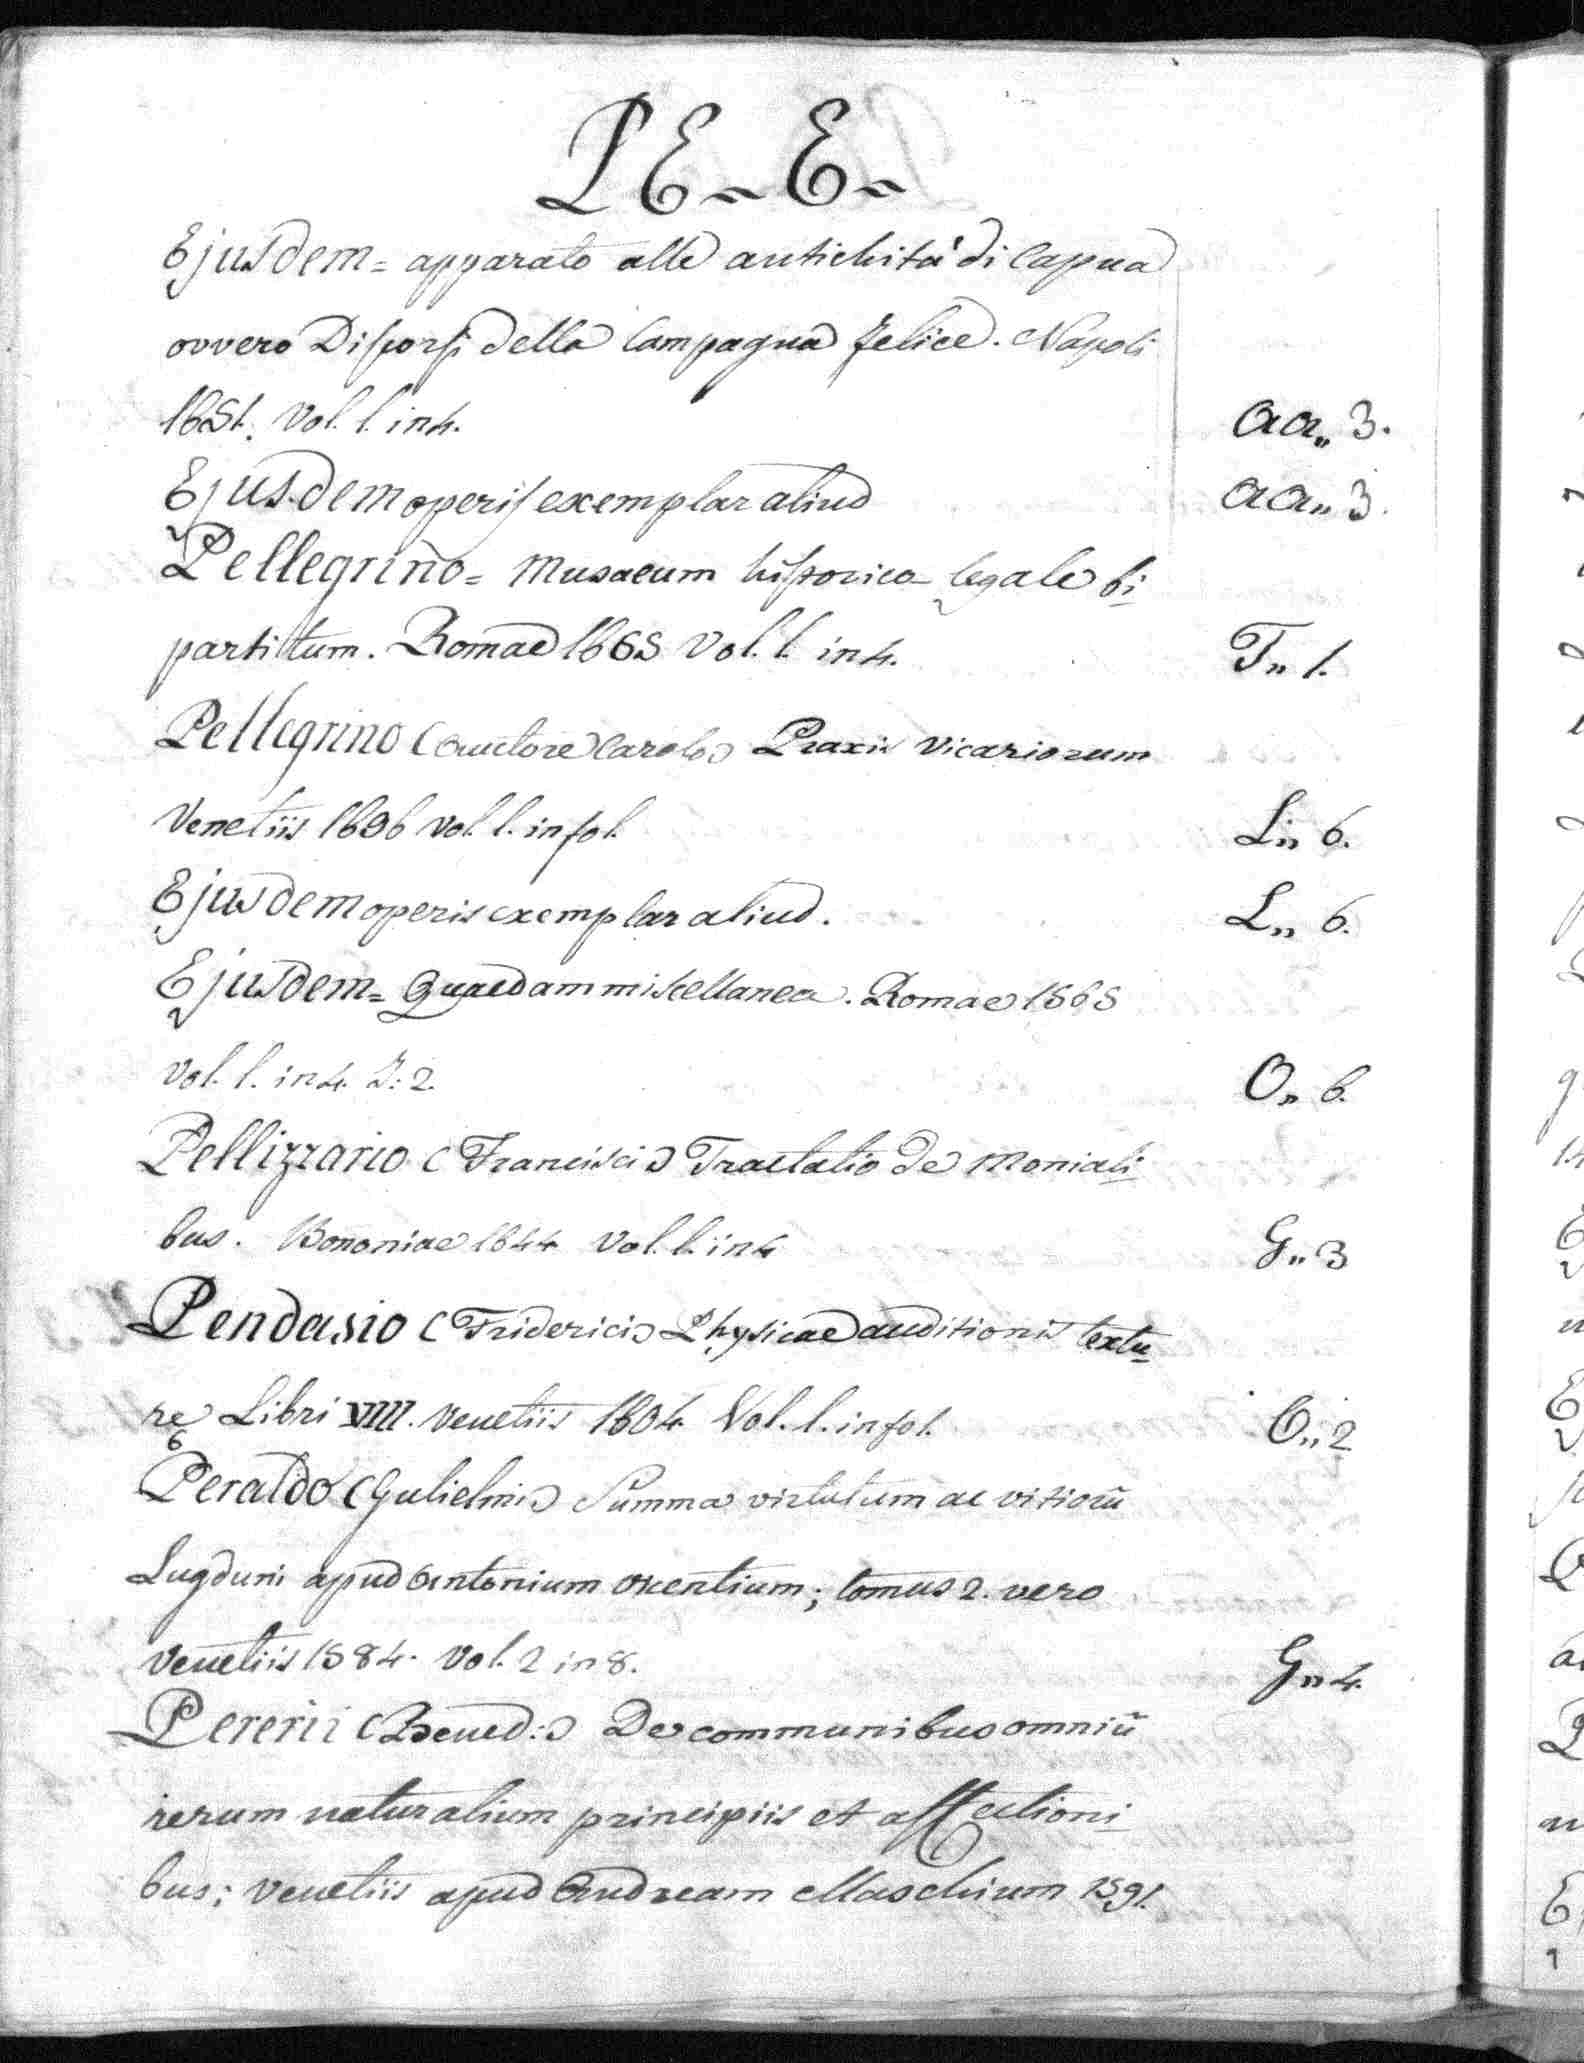 PE„E„
Ejusdem = apparato alle antichità di Capua
ovvero Discorsi della Campagna felice. Napoli
1651. Vol. 1. in 4. aa„ 3.
Ejusdem operis exemplar aliud aa„ 3.
Pellegrino = Musaeum historico-legale bi
partitum. Romae 1665 Vol. 1. in 4. T„ 1.
Pellegrino (auctore Carolo) Praxis Vicariorum
Venetiis 1696 vol. 1. in fol. L„ 6.
Ejusdem operis exemplar aliud. L„ 6.
Ejusdem = Quaedam miscellanea. Romae 1565
Vol. 1. in 4. J: 2. O„ 6.
Pellizzario (Francisci) Tractatio de Moniali
bus. Bononiae 1644 Vol. 1. in 4 G„ 3
Pendasio (Friderici) Physicae auditionis textu
re Libri VIII. Venetiis 1604 Vol. 1. in fol. O„ 2
Peraldo (Gulielmi) Summa virtutum ac vitiorũ
Lugduni apud Antonium ; tomus 2. vero
Venetiis 1584. Vol. 2 in 8. G„ 4.
Pererii (Bened:) De communibus omniũ
rerum naturalium principiis et affectioni
bus; Venetiis apud Andream Maschium 1591.